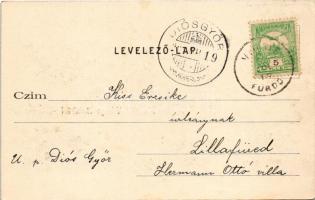 DIÓSGYŐR
19
LEVELEZŐ-LAP.
5
FÜRDŐ
Czim Kiss Erzsike
úrleánynak
Lillafüred
U. p. Diós Győr
Hermann Ottó villa